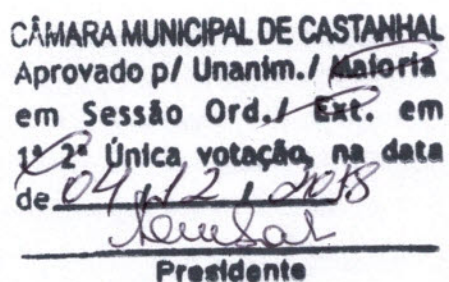 CÂMARA MUNICIPAL DE CASTANHAL
Aprovado p/ Unanim./ Maioria
em Sessão Ord./ Ext. em
1ª 2ª Única votação, na data
de 04 / 12 / 2018
Presidente